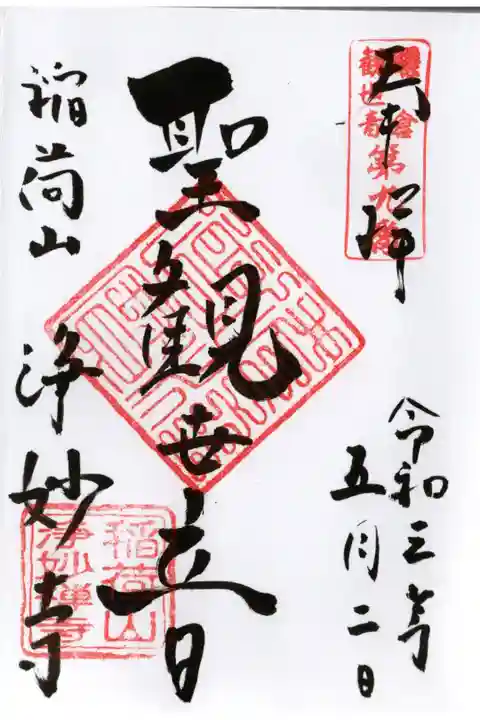 奉拝
鎌倉
観世音
第九番
令和三年
五月二日
聖観世音
稲荷山 浄妙寺
稲荷山
浄妙禅寺